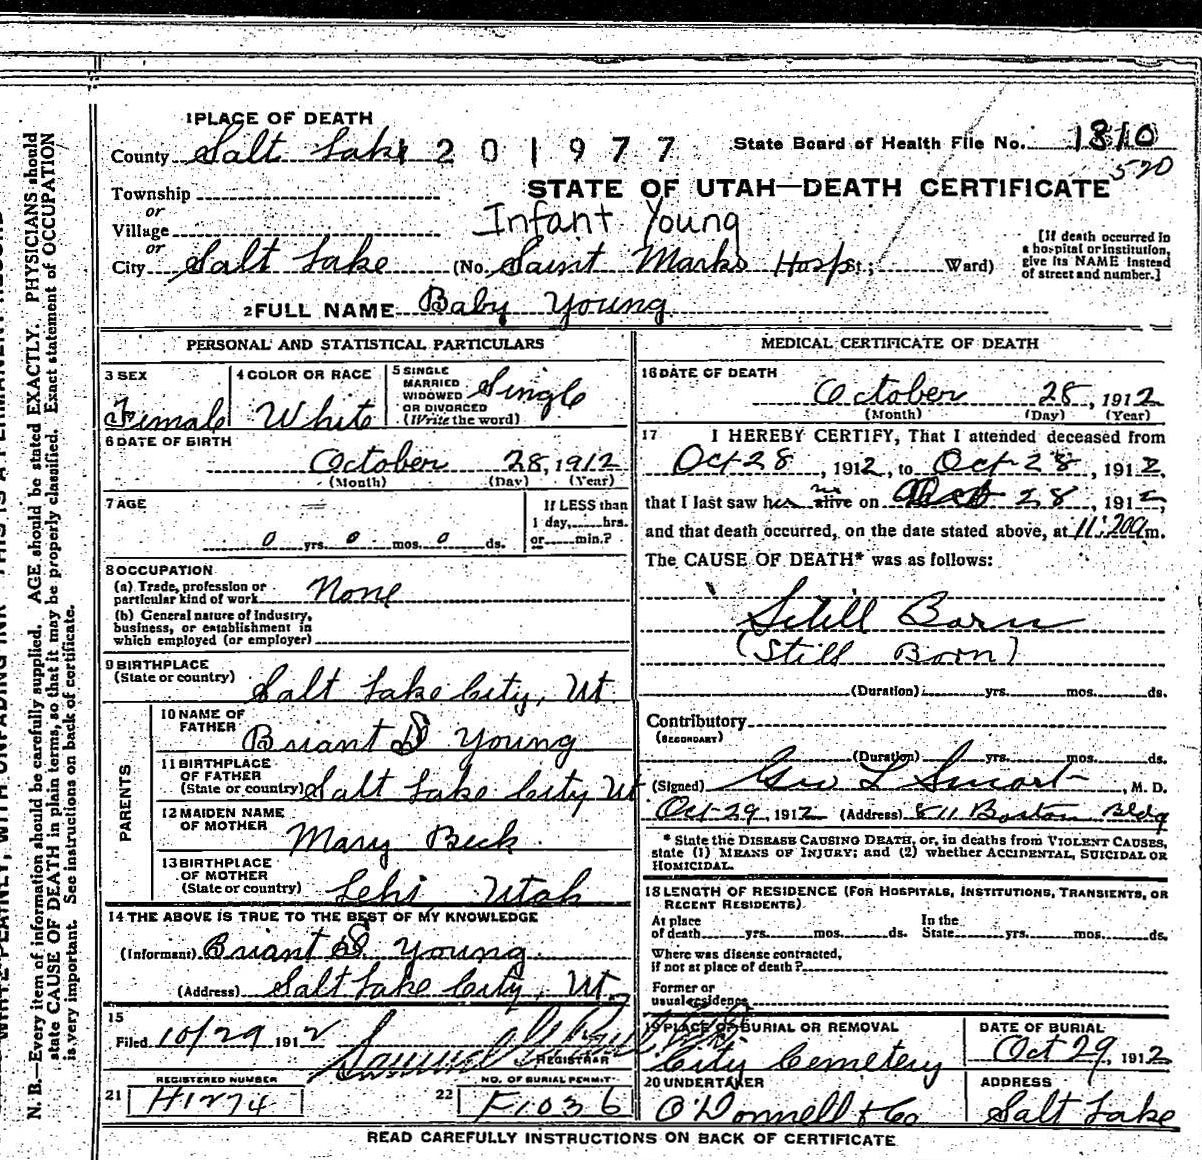 1 PLACE OF DEATH
County Salt Lake 1 2 0 1 9 7 7 State Board of Health File No. 1810
520
Township
or
Village
or
STATE OF UTAH—DEATH CERTIFICATE
Infant Young
City Salt Lake (No. Saint Marks Hosp St.; Ward)
[If death occurred in
a hospital or institution,
give its NAME instead
of street and number.]
2 FULL NAME Baby Young
PERSONAL AND STATISTICAL PARTICULARS
3 SEX
Female
4 COLOR OR RACE
White
5 SINGLE
MARRIED
WIDOWED
OR DIVORCED
(Write the word)
Single
6 DATE OF BIRTH
October 28, 1912
(Month) (Day) (Year)
7 AGE
0 yrs. 0 mos. 0 ds.
If LESS than
1 day, hrs.
or min.?
8 OCCUPATION
(a) Trade, profession or
particular kind of work None
(b) General nature of industry,
business, or establishment in
which employed (or employer)
9 BIRTHPLACE
(State or country) Salt Lake City, Ut.
PARENTS
10 NAME OF
FATHER Briant S Young
11 BIRTHPLACE
OF FATHER
(State or country) Salt Lake City Ut
12 MAIDEN NAME
OF MOTHER Mary Beck
13 BIRTHPLACE
OF MOTHER
(State or country) Lehi, Utah
14 THE ABOVE IS TRUE TO THE BEST OF MY KNOWLEDGE
(Informant) Briant S. Young
(Address) Salt Lake City, Ut.
15
Filed 10/29 1912 Samuel
REGISTRAR
REGISTERED NUMBER
21 H1274
NO. OF BURIAL PERMIT
22 F1036
MEDICAL CERTIFICATE OF DEATH
16 DATE OF DEATH
October 28, 1912
(Month) (Day) (Year)
17 I HEREBY CERTIFY, That I attended deceased from
Oct-28, 1912, to Oct-28, 1912,
that I last saw her no alive on Oct 28, 1912,
and that death occurred, on the date stated above, at 11:20 a m.
The CAUSE OF DEATH* was as follows:
Still Born
(Still Born)
(Duration) yrs. mos. ds.
Contributory
(SECONDARY)
(Duration) yrs. mos. ds.
(Signed) Geo L Smart, M. D.
Oct-29, 1912 (Address) 811 Boston Bldg
* State the DISEASE CAUSING DEATH, or, in deaths from VIOLENT CAUSES,
state (1) MEANS OF INJURY; and (2) whether ACCIDENTAL, SUICIDAL OR
HOMICIDAL.
18 LENGTH OF RESIDENCE (FOR HOSPITALS, INSTITUTIONS, TRANSIENTS, OR
RECENT RESIDENTS)
At place
of death yrs. mos. ds.
In the
State yrs. mos. ds.
Where was disease contracted,
if not at place of death?
Former or
usual residence
19 PLACE OF BURIAL OR REMOVAL
City Cemetery
DATE OF BURIAL
Oct 29, 1912
20 UNDERTAKER
O'Donnell & Co
ADDRESS
Salt Lake
READ CAREFULLY INSTRUCTIONS ON BACK OF CERTIFICATE
N. B.—Every item of information should be carefully supplied. AGE should be stated EXACTLY. PHYSICIANS should
state CAUSE OF DEATH in plain terms, so that it may be properly classified. Exact statement of OCCUPATION
is very important. See instructions on back of certificate.